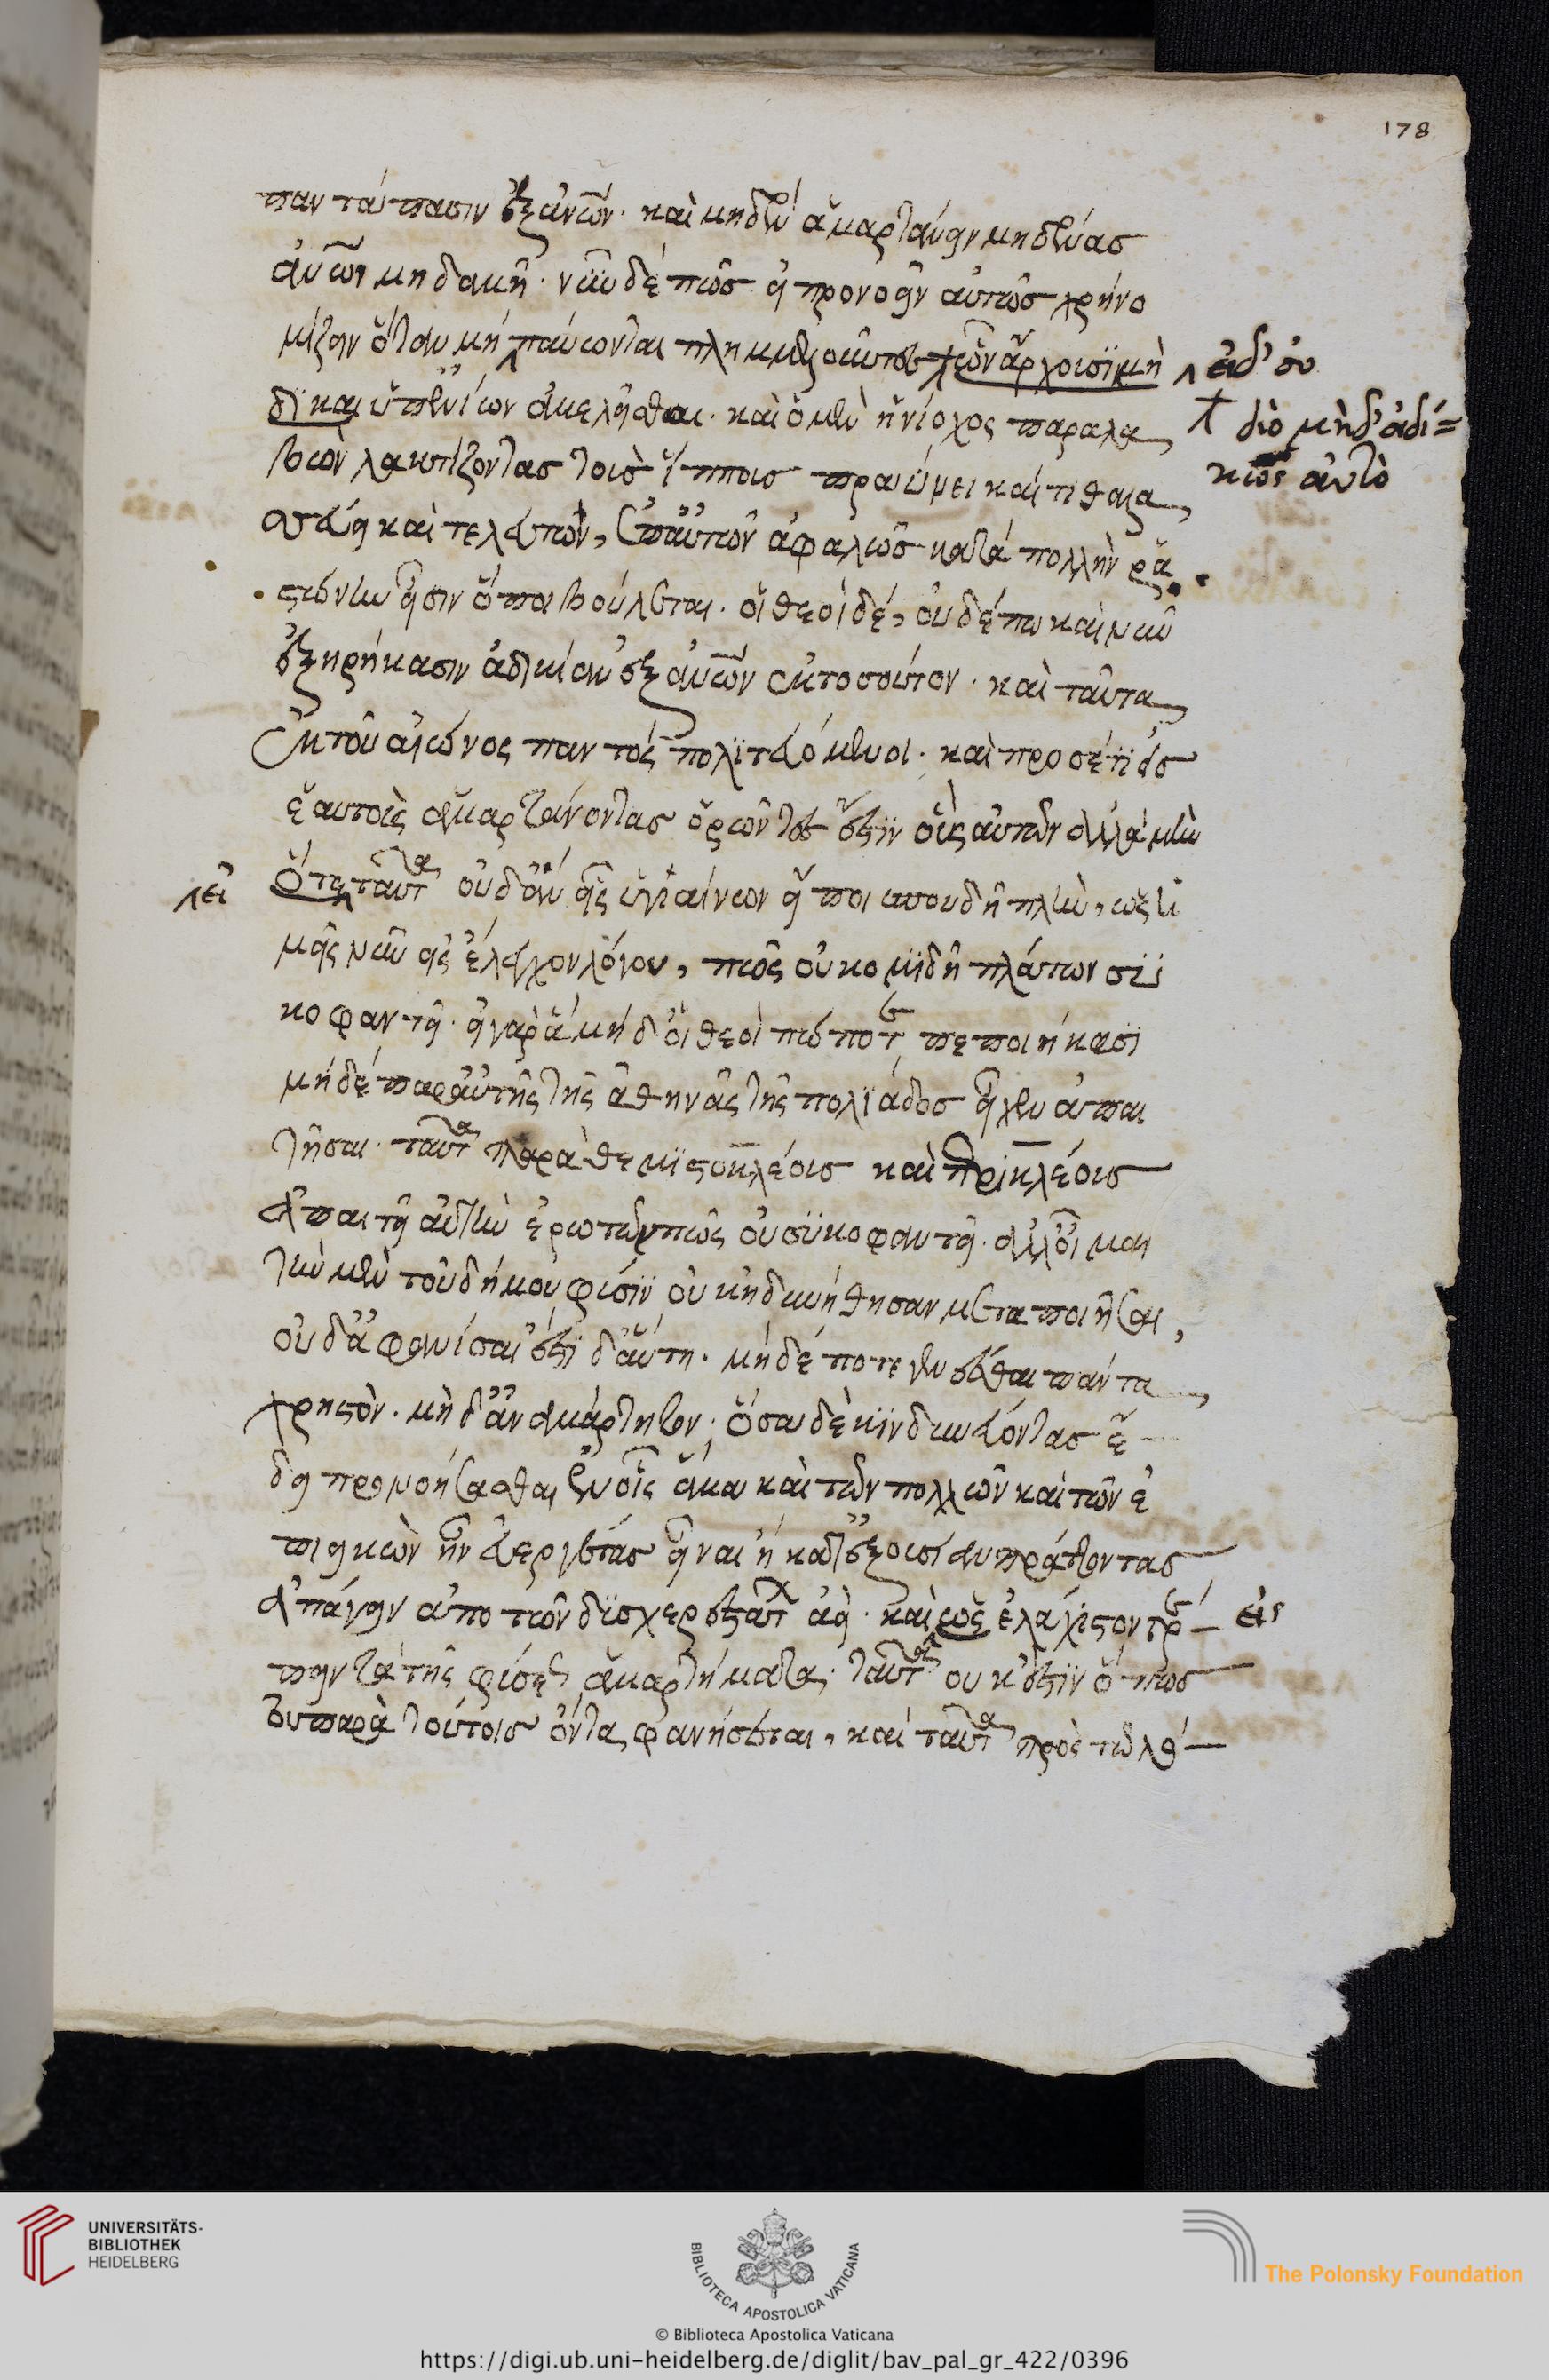 178
παντάπασιν ἐξ ἀνῶν· καὶ μηδὲν ἁμαρτάνειν μηδένας
αὐτῶν μηδαμῆ· νῦν δέ πως ἢ προνοεῖν αὐτοὺς χρὴ νο
μίζειν ὅταν μὴ παύσωνται πλημμελοῦντες τῶν ἄρχουσι μὴ
δὶ καὶ ὑπευ ἀμελῆσθαι· καὶ ὁ μὲν ἡνίοχος παραλα
βὼν λακτίζοντας τοὺς ἵππους πραΰνει καὶ τιθασ
σεύει καὶ τελευτῶν, ἐπ' αὐτῶν ἀσφαλῶς κατὰ πολλὴν ῥα
στώνην εἶσιν ὅποι βούλεται. οἱ θεοὶ δέ, οὐδέπω καὶ νῦν
ἐξῃρήκασιν ἀδικίαν ἐξ αὐτῶν ἐκ τοσούτου· καὶ ταῦτα
ἐκ τοῦ αἰῶνος παντὸς πολιτευόμενοι· καὶ προσέτι εἰς
ἑαυτοὺς ἁμαρτάνοντας ὁρῶντες ἔστιν οὓς αὐτῶν ἀλλὰ μὴν
ὅτε ταῦτα οὐδ' ἂν εἷς ὑγιαίνων εἴποι σπουδῆ πλὴν, ὥστε
μεῖς νῦν εἰς ἔλεγχον λόγου, πῶς οὐ κομιδῆ πλάττων συ
κοφαντεῖ· εἰ γὰρ ἃ μηδ' οἱ θεοὶ πώποτε πεποιήκασι
μηδὲ παρ' αὐτῆς τῆς ἀθηνᾶς τῆς πολιάδος εἶχεν ἀπαι
τῆσαι· ταῦτα παρὰ θεμιστοκλέους καὶ περικλέους
ἀπαιτεῖ αὐτὴν ἐρωτῶν πῶς οὐ συκοφαντεῖ· ἀλλ' οἶμαι
τὴν μὲν τοῦ δήμου φύσιν οὐκ ἠδυνήθησαν μεταποιῆσαι,
οὐδ' ἀφανίσαι ἔστι δ' αὕτη· μηδέποτε γενέσθαι πάντα
χρηστὸν· μὴ δ' ἀναμάρτητον· ὅσα δὲ κινδυνεύοντας ἔ
δει προνοήσασθαι ἐν οἷς ἅμα καὶ τῶν πολλῶν καὶ τῶν ἐ
πιεικῶν ἦν εὐεργέτας εἶναι ἢ κατ' ἐξουσίαν πράττοντας
ἀπάγειν ἀπὸ τῶν δυσχερεστάτων ἀεὶ· καὶ ὡς ἐλάχιστον τρέ
πειν τὰ τῆς φύσεως ἁμαρτήματα· ταῦτα οὐκ ἔστιν ὅπως
οὐ παρὰ τούτοις ὄντα φανήσεται, καὶ ταῦτα πρὸς τῷ λέ
εἰδ' οὐ
διὸ μὴδ' ἀδί=
κως αὐτὸ
εἰ
εἰς
UNIVERSITÄTS-
BIBLIOTHEK
HEIDELBERG
BIBLIOTECA APOSTOLICA VATICANA
The Polonsky Foundation
© Biblioteca Apostolica Vaticana
https://digi.ub.uni-heidelberg.de/diglit/bav_pal_gr_422/0396